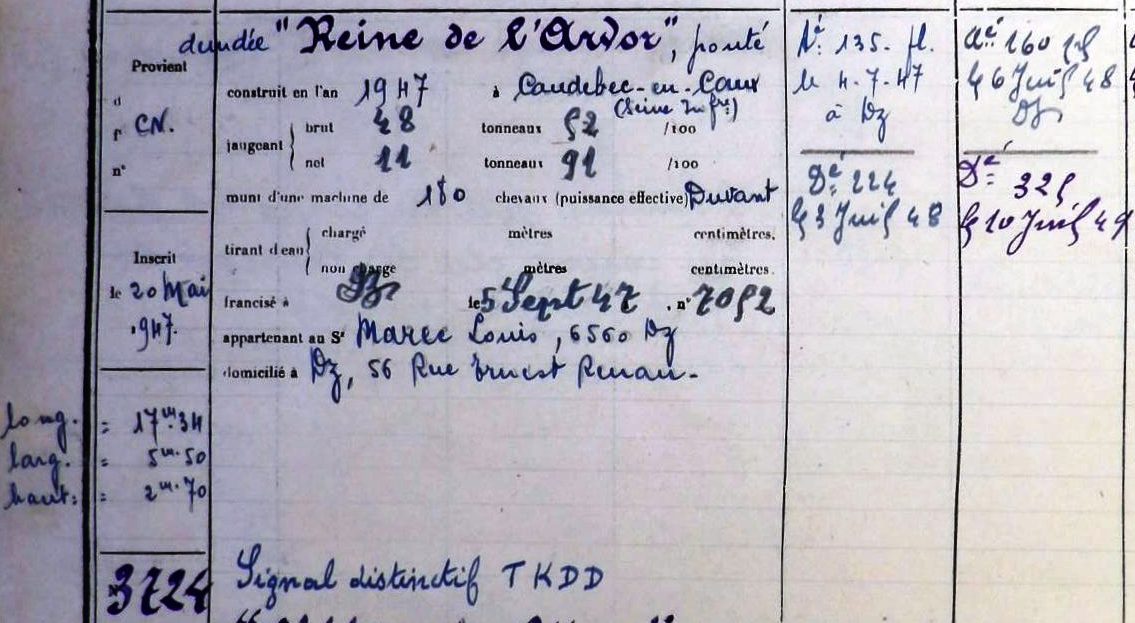 dundée "Reine de l'Arvor", ponté
Provient
d
CN.
n°
construit en l'an 1947 à Caudebec-en-Caux
(Seine Infre)
jaugeant brut 48 tonneaux 52 /100
net 11 tonneaux 91 /100
muni d'une machine de 180 chevaux (puissance effective) Duvant
tirant d'eau chargé mètres centimètres.
non chargé mètres centimètres.
Inscrit
le 20 Mai
1947.
francisé à le 5 Sept 47, n° 7052
appartenant au Sr Marec Louis, 6560 Dz
domicilié à Dz, 56 Rue Ernest Renan.
long. = 17m.34
larg. = 5m.50
haut: = 2m.70
3724
Signal distinctif TKDD
Aé: 135. fl.
le 4-7-47
à Dz
Dé 224
le 3 Juil 48
Aé 160
le 6 Juil 48
Dz
Dé 325
le 20 Juil 49